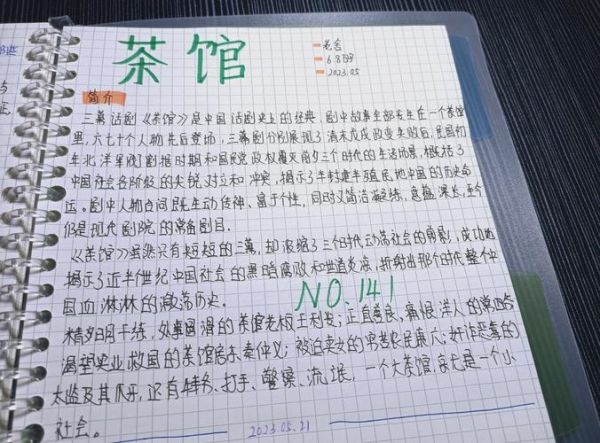 茶馆
老舍
6.8万字
2023.05
简介
三幕话剧《茶馆》是中国话剧史上的经典。剧中故事全部发生在一个茶馆
里,六七十个人物先后登场,三幕剧分别展现了清末戊戌政变失败后、民国初
年北洋军阀割据时期和国民党政权覆灭前夕三个时代的生活场景,概括了
中国社会各阶级的尖锐对立和冲突,揭示了半封建半殖民地中国的历史命
运。剧中人物台词既生动传神、富于个性,同时又简洁凝练、意蕴深长,至今
仍是现代剧院的常备剧目。
《茶馆》虽然只有短短的三幕,却浓缩了三个时代动荡社会的背影,成功地
揭示了近半世纪中国社会的黑暗腐败和世道炎凉,折射出那个时代整个中
国血淋淋的激荡历史。
NO.141
精明干练、处事圆滑的茶馆老板王利发;正直善良、痛恨洋人的常四爷
渴望实业救国的茶馆房东秦仲义;被迫卖女的穷苦农民康六;奸诈恶毒的
太监及其爪牙,还有特务、打手、警察、流氓,一个大茶馆,就是一个小
社会。
2023.05.21